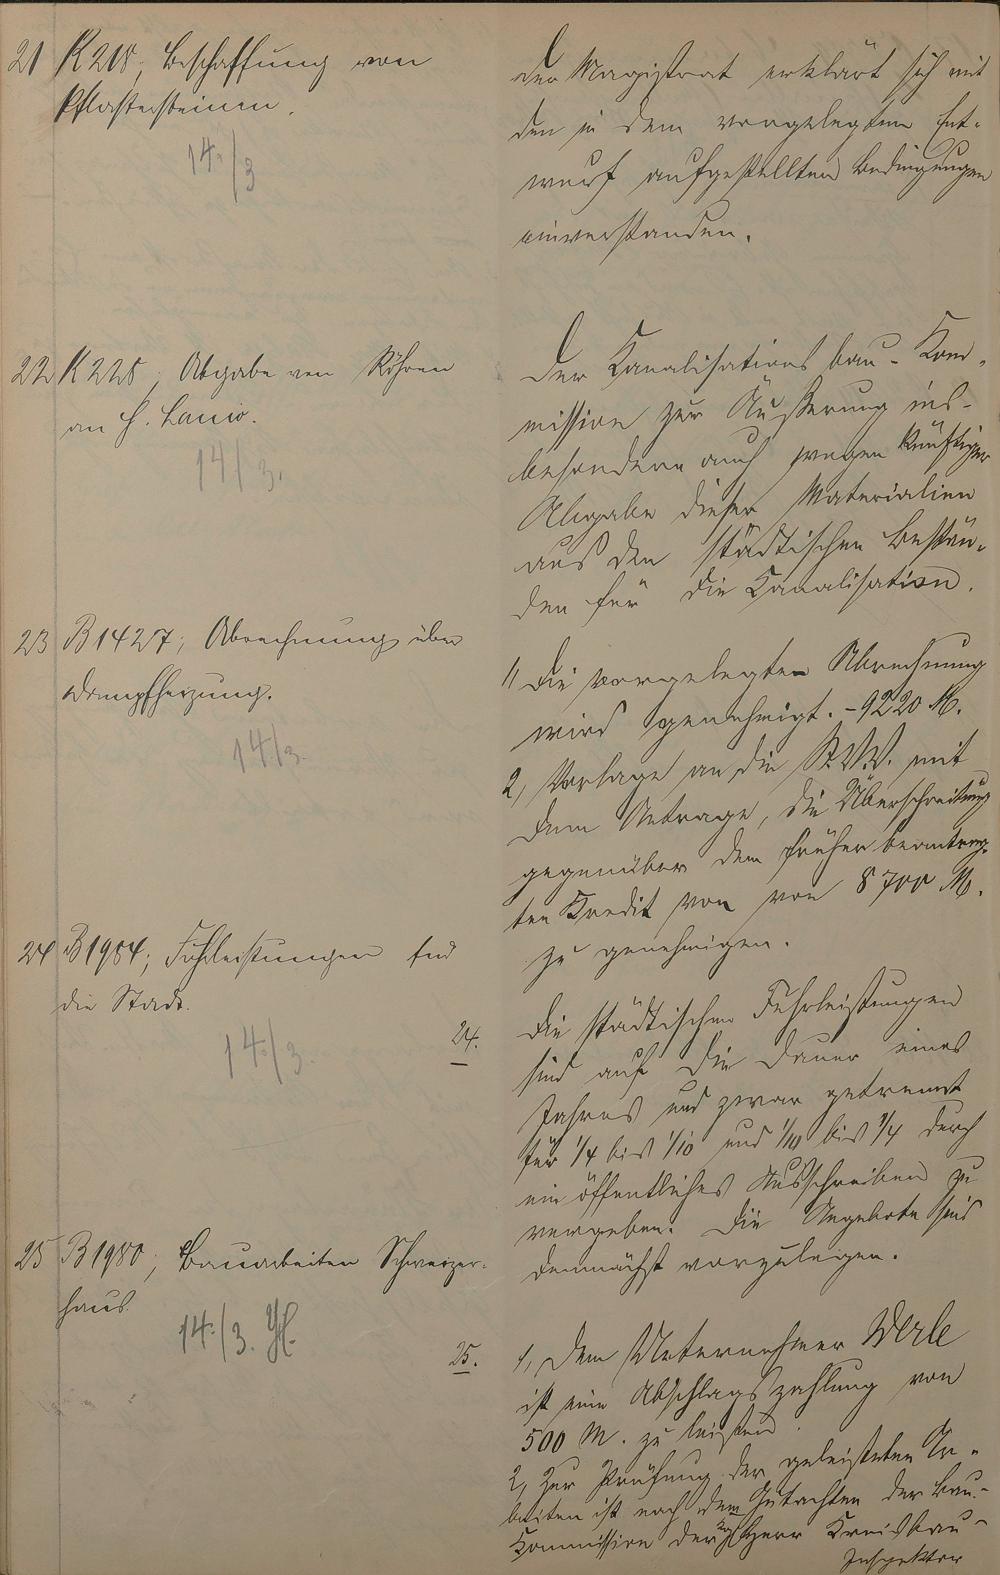 21 K 218, Beschaffung von
Pflastersteinen.
14./3
Der Magistrat erklärt sich mit
den in dem vorgelegten Ent-
wurf aufgestellten Bedingungen
einverstanden.
22 K 228, Abgabe von Röhren
an H. Lanio.
14/3.
Der Kanalisationsbau-Kom-
mission zur Äußerung ins-
besondere auch wegen künftiger
Abgabe dieser Materialien
aus den städtischen Bestän-
den für die Kanalisation.
23 B 1427, Abrechnung über
Dampfheizung.
14/3.
1, Die vorgelegten Abrechnung
wird genehmigt. - 9220 M.
2, Vorlage an die St.V.V. mit
dem Antrage, die Überschreitung
gegenüber dem früher beantrag-
ten Kredit von von 8700 M.
zu genehmigen.
24 B 1984; Fuhrleistungen für
die Stadt.
14./3.
24. Die städtischen Fuhrleistungen
sind auf die Dauer eines
Jahres und zwar getrennt
für 1/4 bis 1/10 und 1/10 bis 1/4 durch
ein öffentliches Ausschreiben zu
vergeben. Die Angebote sind
demnächst vorzulegen.
25 B 1980, Bauarbeiten Schweizer-
haus.
14./3.
25. 1, Dem Unternehmer Werle
ist eine Abschlagszahlung von
500 M. zu leisten.
2, Zur Prüfung der geleisteten Ar-
beiten ist nach dem Gutachten der Bau-
Kommission der Kgl Herr Kreisbau-
Inspektor